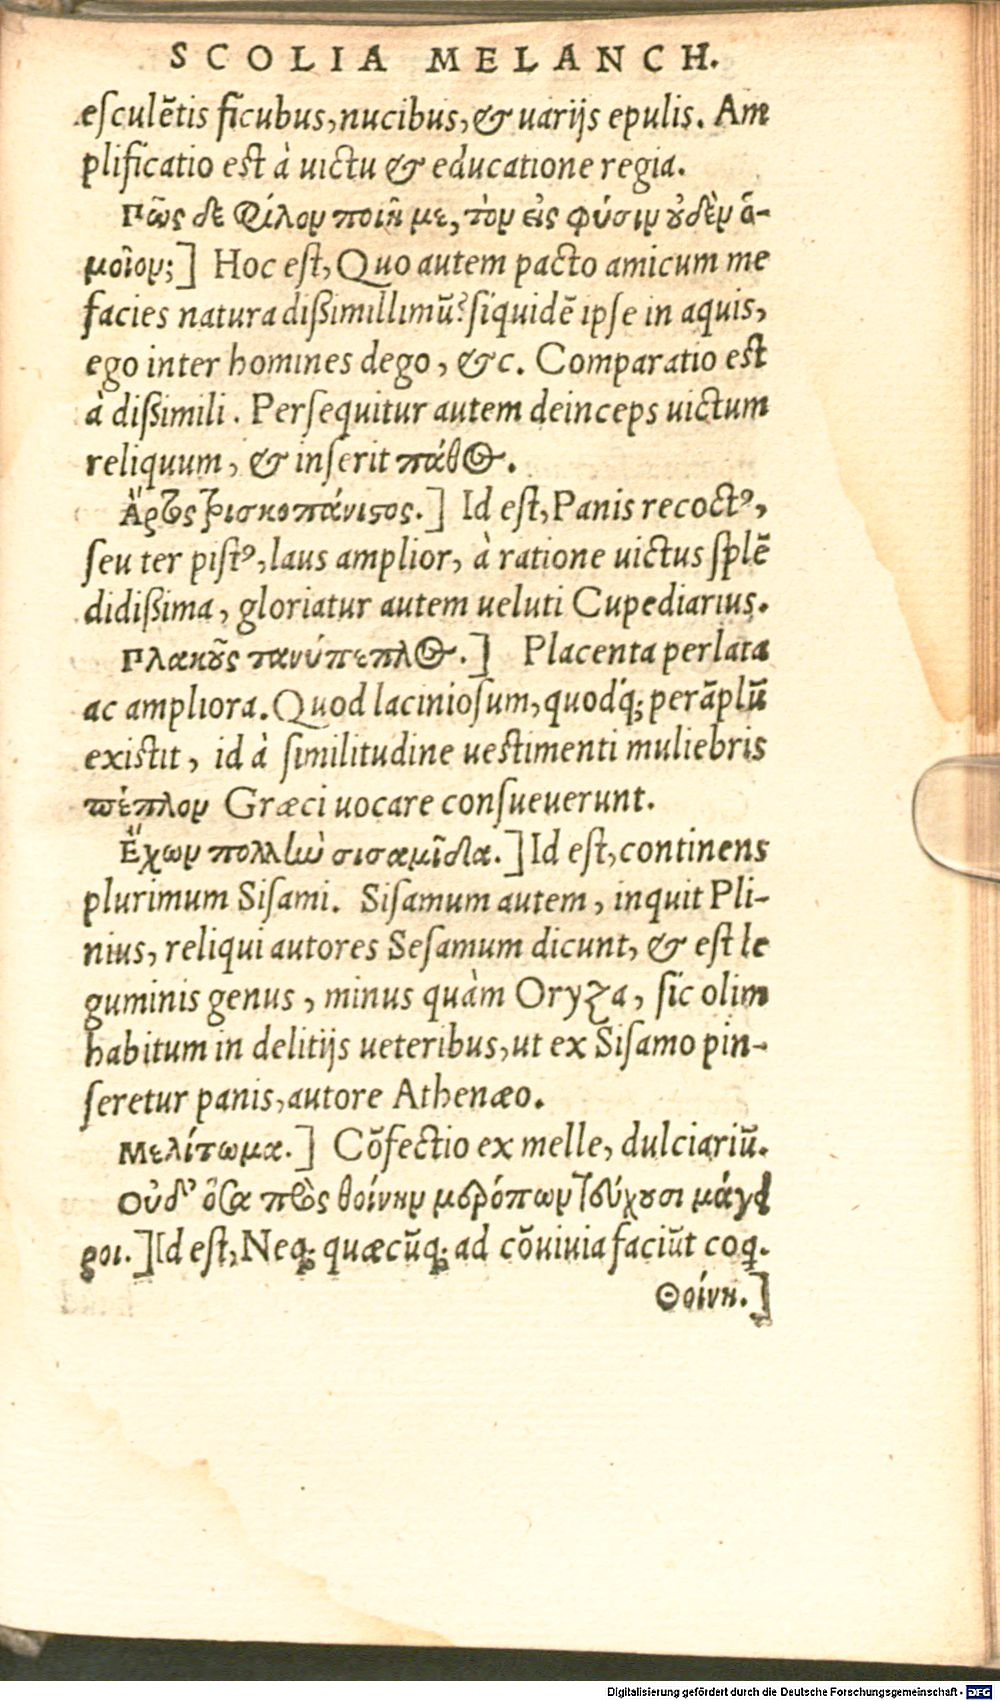 SCOLIA MELANCH.
esculẽtis ficubus, nucibus, & uarijs epulis. Am
plificatio est à uictu & educatione regia.
Γῶς δε φίλον ποιῆ με, τὸν εἰς φύσιν ȣδὲν ὅ-
μοῖον;] Hoc est, Quo autem pacto amicum me
facies natura dißimillimũ? siquidẽ ipse in aquis,
ego inter homines dego, &c. Comparatio est
à dißimili. Persequitur autem deinceps uictum
reliquum, & inserit πάθΘ.
Ἄρτος τρισκοπάνιςος.] Id est, Panis recoctꝰ,
seu ter pistꝰ, laus amplior, à ratione uictus splẽ
didißima, gloriatur autem ueluti Cupediarius.
Γλακȣ͂ς τανύπεπλΘ.] Placenta perlata
ac ampliora. Quod laciniosum, quodq́; perãplũ
existit, id à similitudine uestimenti muliebris
πέπλον Græci uocare consueuerunt.
Ἔχων πολλὼ σισαμῖδα.] Id est, continens
plurimum Sisami. Sisamum autem, inquit Pli-
nius, reliqui autores Sesamum dicunt, & est le
guminis genus, minus quàm Oryza, sic olim
habitum in delitijs ueteribus, ut ex Sisamo pin-
seretur panis, autore Athenæo.
Μελίτωμα.] Cõfectio ex melle, dulciariũ.
Οὐδ' ὅσα πρὸς θοίνην μερόπων τεύχȣσι μάγε
ροι.] Id est, Neq; quæcũq; ad cõuiuia faciũt coq.
Θοίνη.]
Digitalisierung gefördert durch die Deutsche Forschungsgemeinschaft - DFG